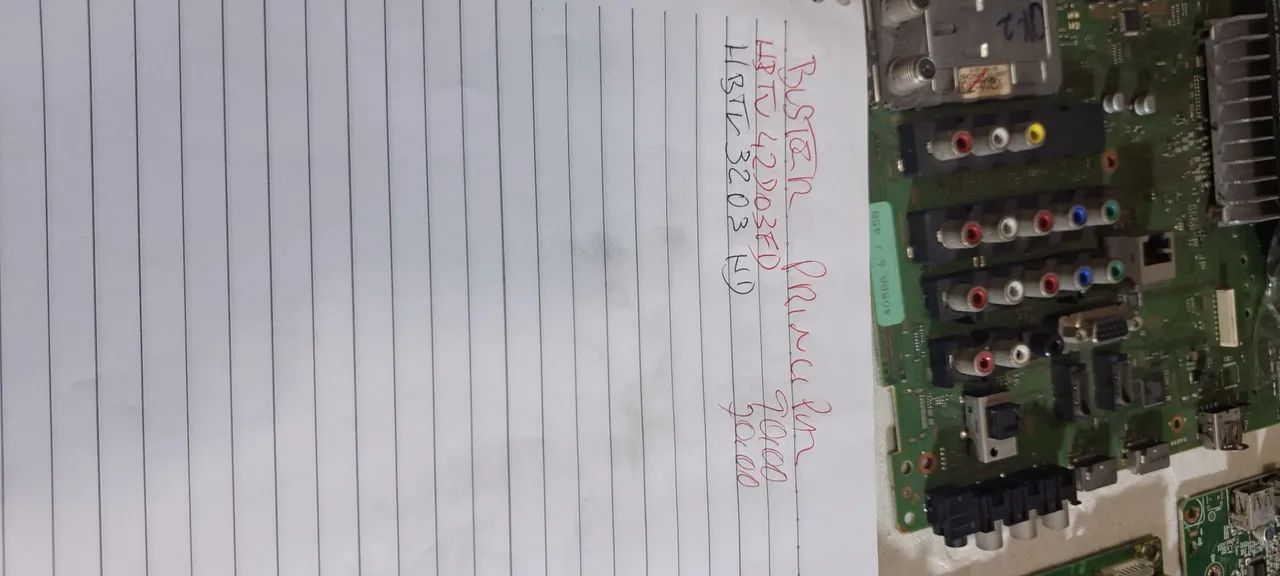 BUSTER PRINCIPAL
HBTV 42D03FD 90,00
HBTV 3203 HD 90,00
40588A 6 / 458
CK2